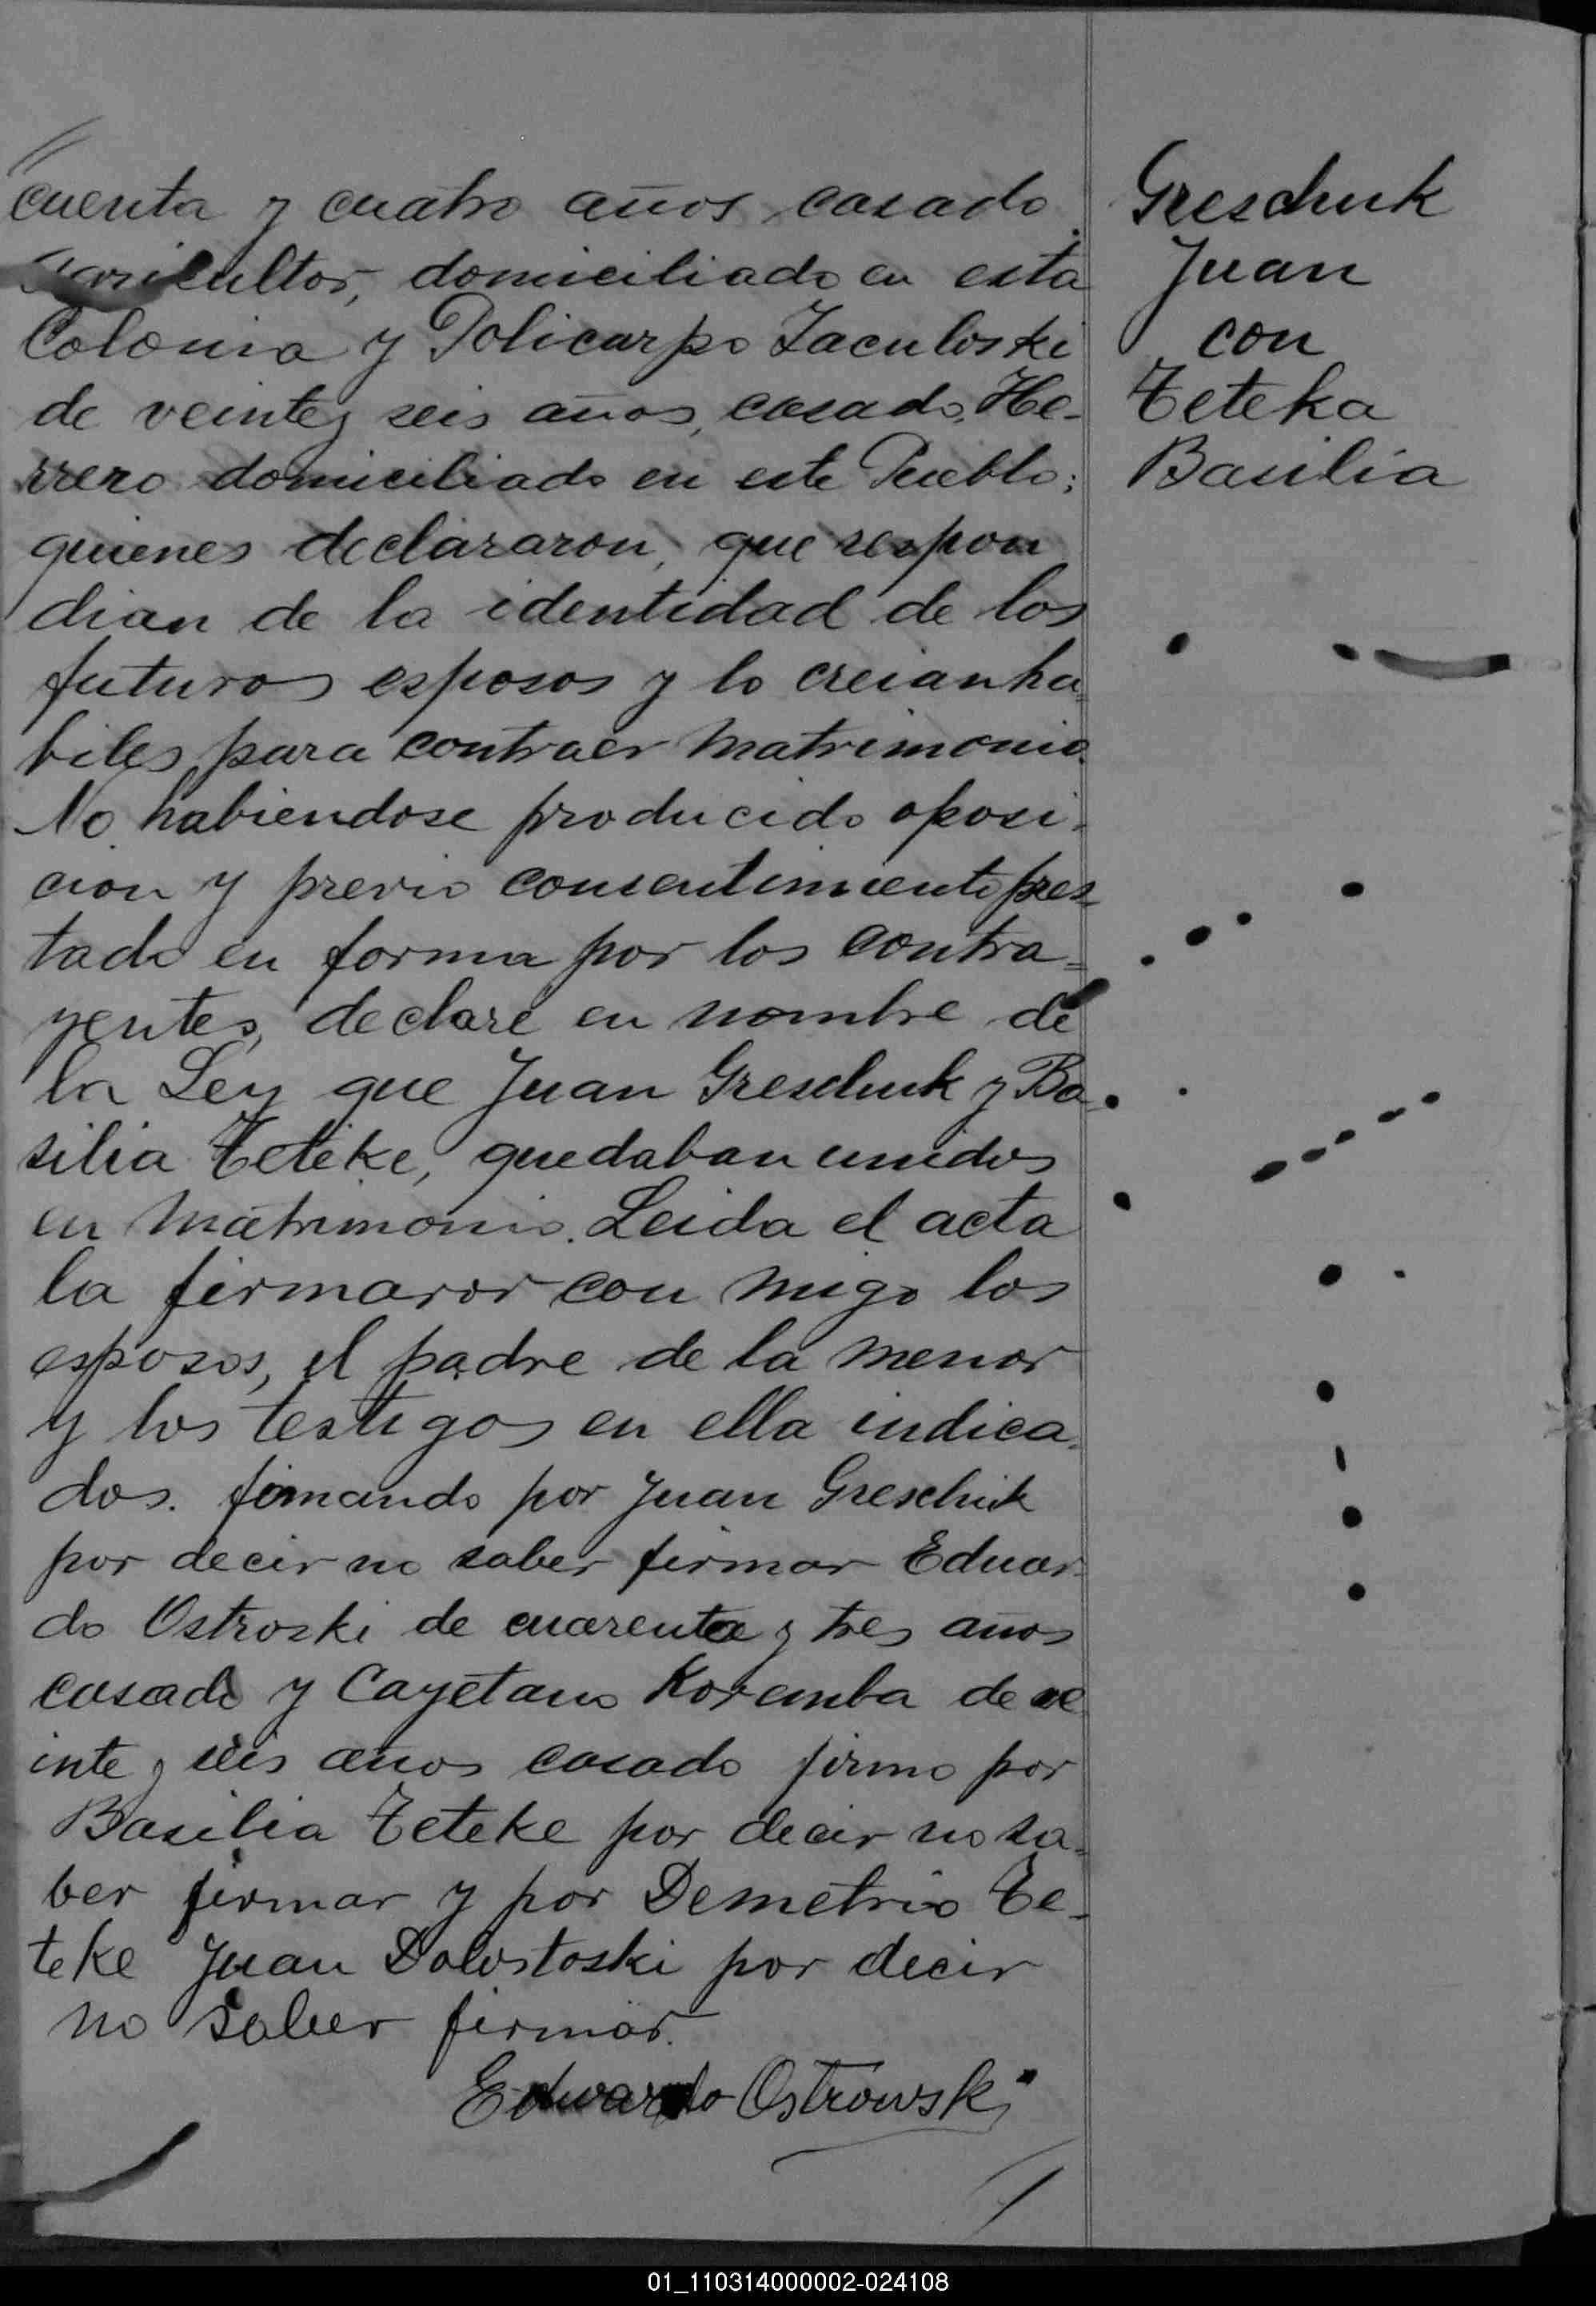 cuenta y cuatro años casado
Agricultor, domiciliado en esta
Colonia y Policarpo Zaculoski
de veinte y seis años, casado, He-
rrero domiciliado en este Pueblo;
quienes declararon, que respon
dian de la identidad de los
futuros esposos y lo creian ha-
biles para contraer matrimonio.
No habiendose producido oposi-
cion y previo consentimiento pres-
tado en forma por los contra=
yentes, declaré en nombre de
la Ley que Juan Greschuk y Ba-
silia Teteke, quedaban unidos
en matrimonio. Leida el acta
la firmaror con migo los
esposos, el padre de la menor
y los testigos en ella indica-
dos. firmando por Juan Greschuk
por decir no saber firmar Eduar-
do Ostroski de cuarenta y tres años
casado y Cayetano Koremba de ve
inte y seis años casado firmo por
Basilia Teteke por decir no sa-
ber firmar y por Demetrio Te-
teke Juan Dolostoski por decir
no saber firmar.
Eduardo Ostrowski
Greschuk
Juan
con
Teteka
Basilia
01_110314000002-024108